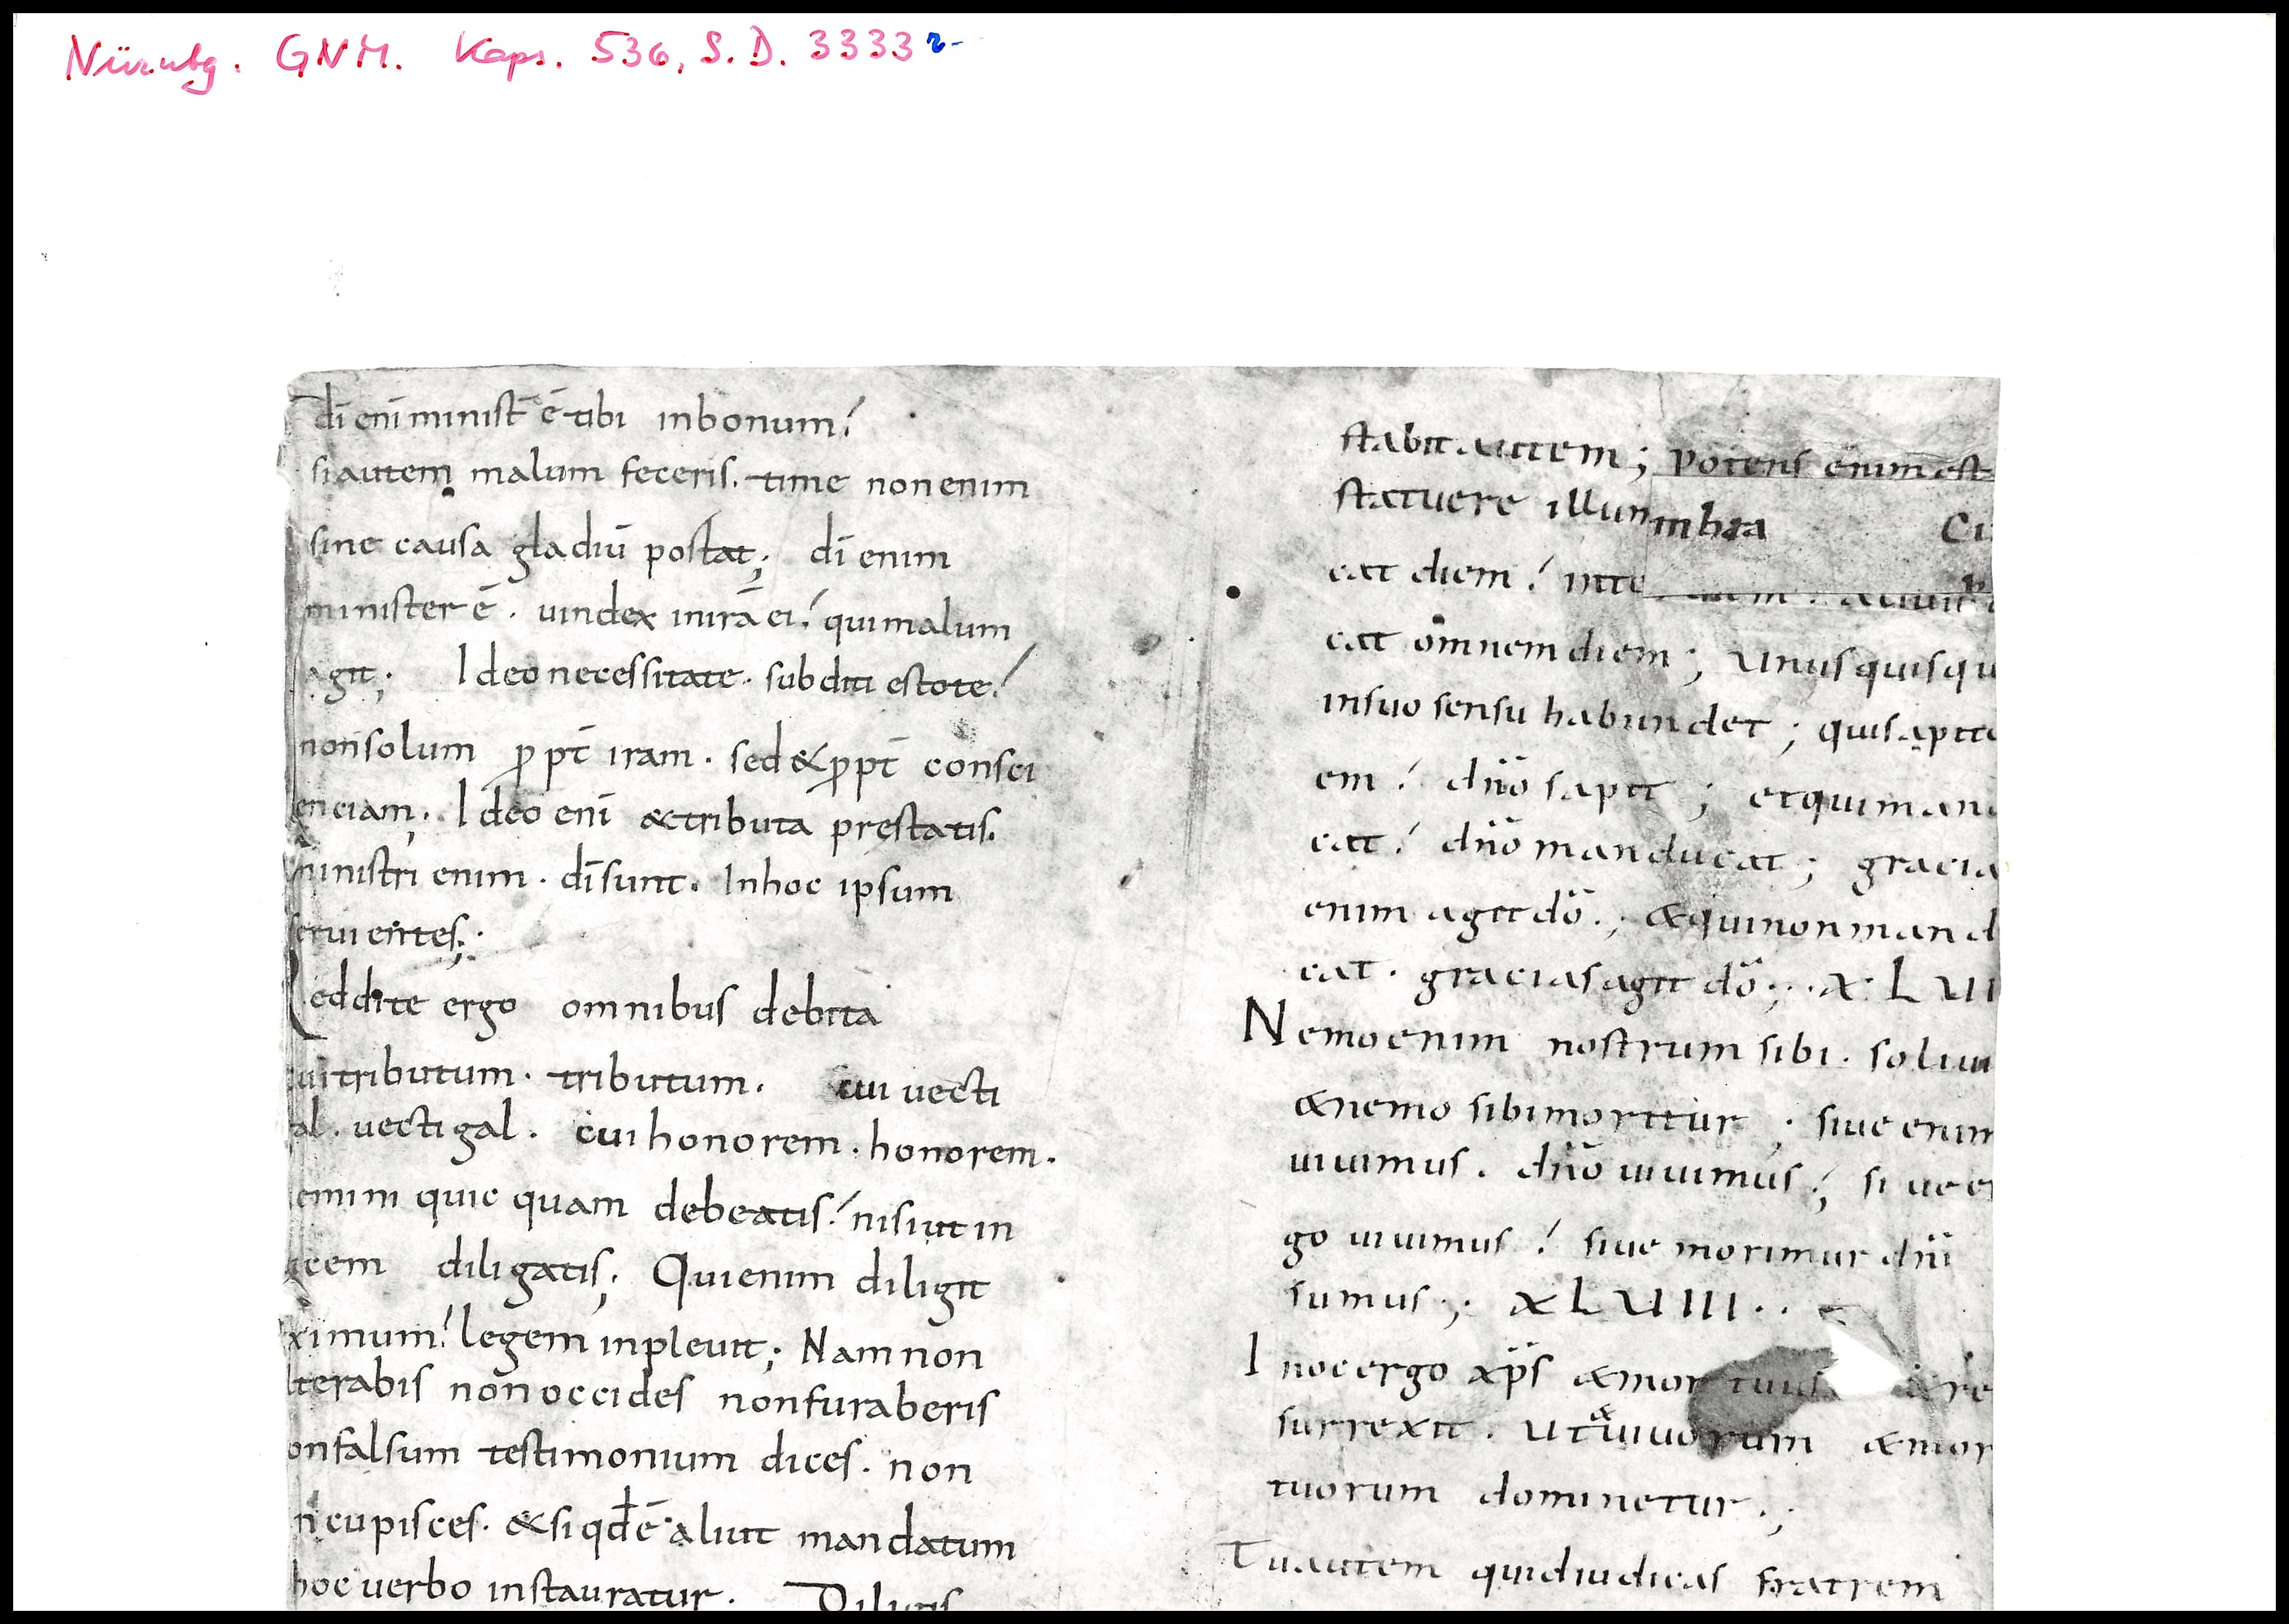 Nürnbg. GNM. Kaps. 536, S.D. 3333 2-
dī enī minist̄ ē tibi inbonum!
siautem malum feceris. time nonenim
sine causa gladiū postat; dī enim
minister ē. uindex inirā ei! quimalum
agit; Ideonecessitate. subditi estote!
nonsolum ꝓpt̄ iram. sed&ꝓpt̄ consci
enciam. Ideo enī &tributa prestatis.
ministri enim. dīsunt. Inhoc ipsum
seruientes;
Reddite ergo omnibus debita
cui tributum. tributum. cui uecti
al. uectigal. cuihonorem. honorem.
emini quicquam debeatis! nisiut in
icem diligatis; Quienim diligit
ximum! legem inpleuit; Namnon
lterabis nonoccides nonfuraberis
onfalsum testimonium dices. non
ncupisces. &siqđē aliut mandatum
hoc uerbo instauratur. Diligis
stabit autem; potens enim est
statuere illum inhaa Ci
cat diem! inte
cat omnem diem; Unusquisqu
insuo sensu habundet; quisapit
em! dn̄o sapit; etquiman
cat! dn̄o manducat; gracia
enim agit dō; &quinonmand
cat. gracias agit dō; XLVII
Nemoenim nostrum sibi. soliui
&nemo sibimoritur; siue enim
uiuimus. dn̄o uiuimus; siue er
go uiuimus! siue morimur dn̄i
sumus; XLVIII..
Inocergo xp̄s &mortuus &re
surrexit. Ut&uiuorum &mor
tuorum dominetur;
Tuautem quidiudicas fratrem